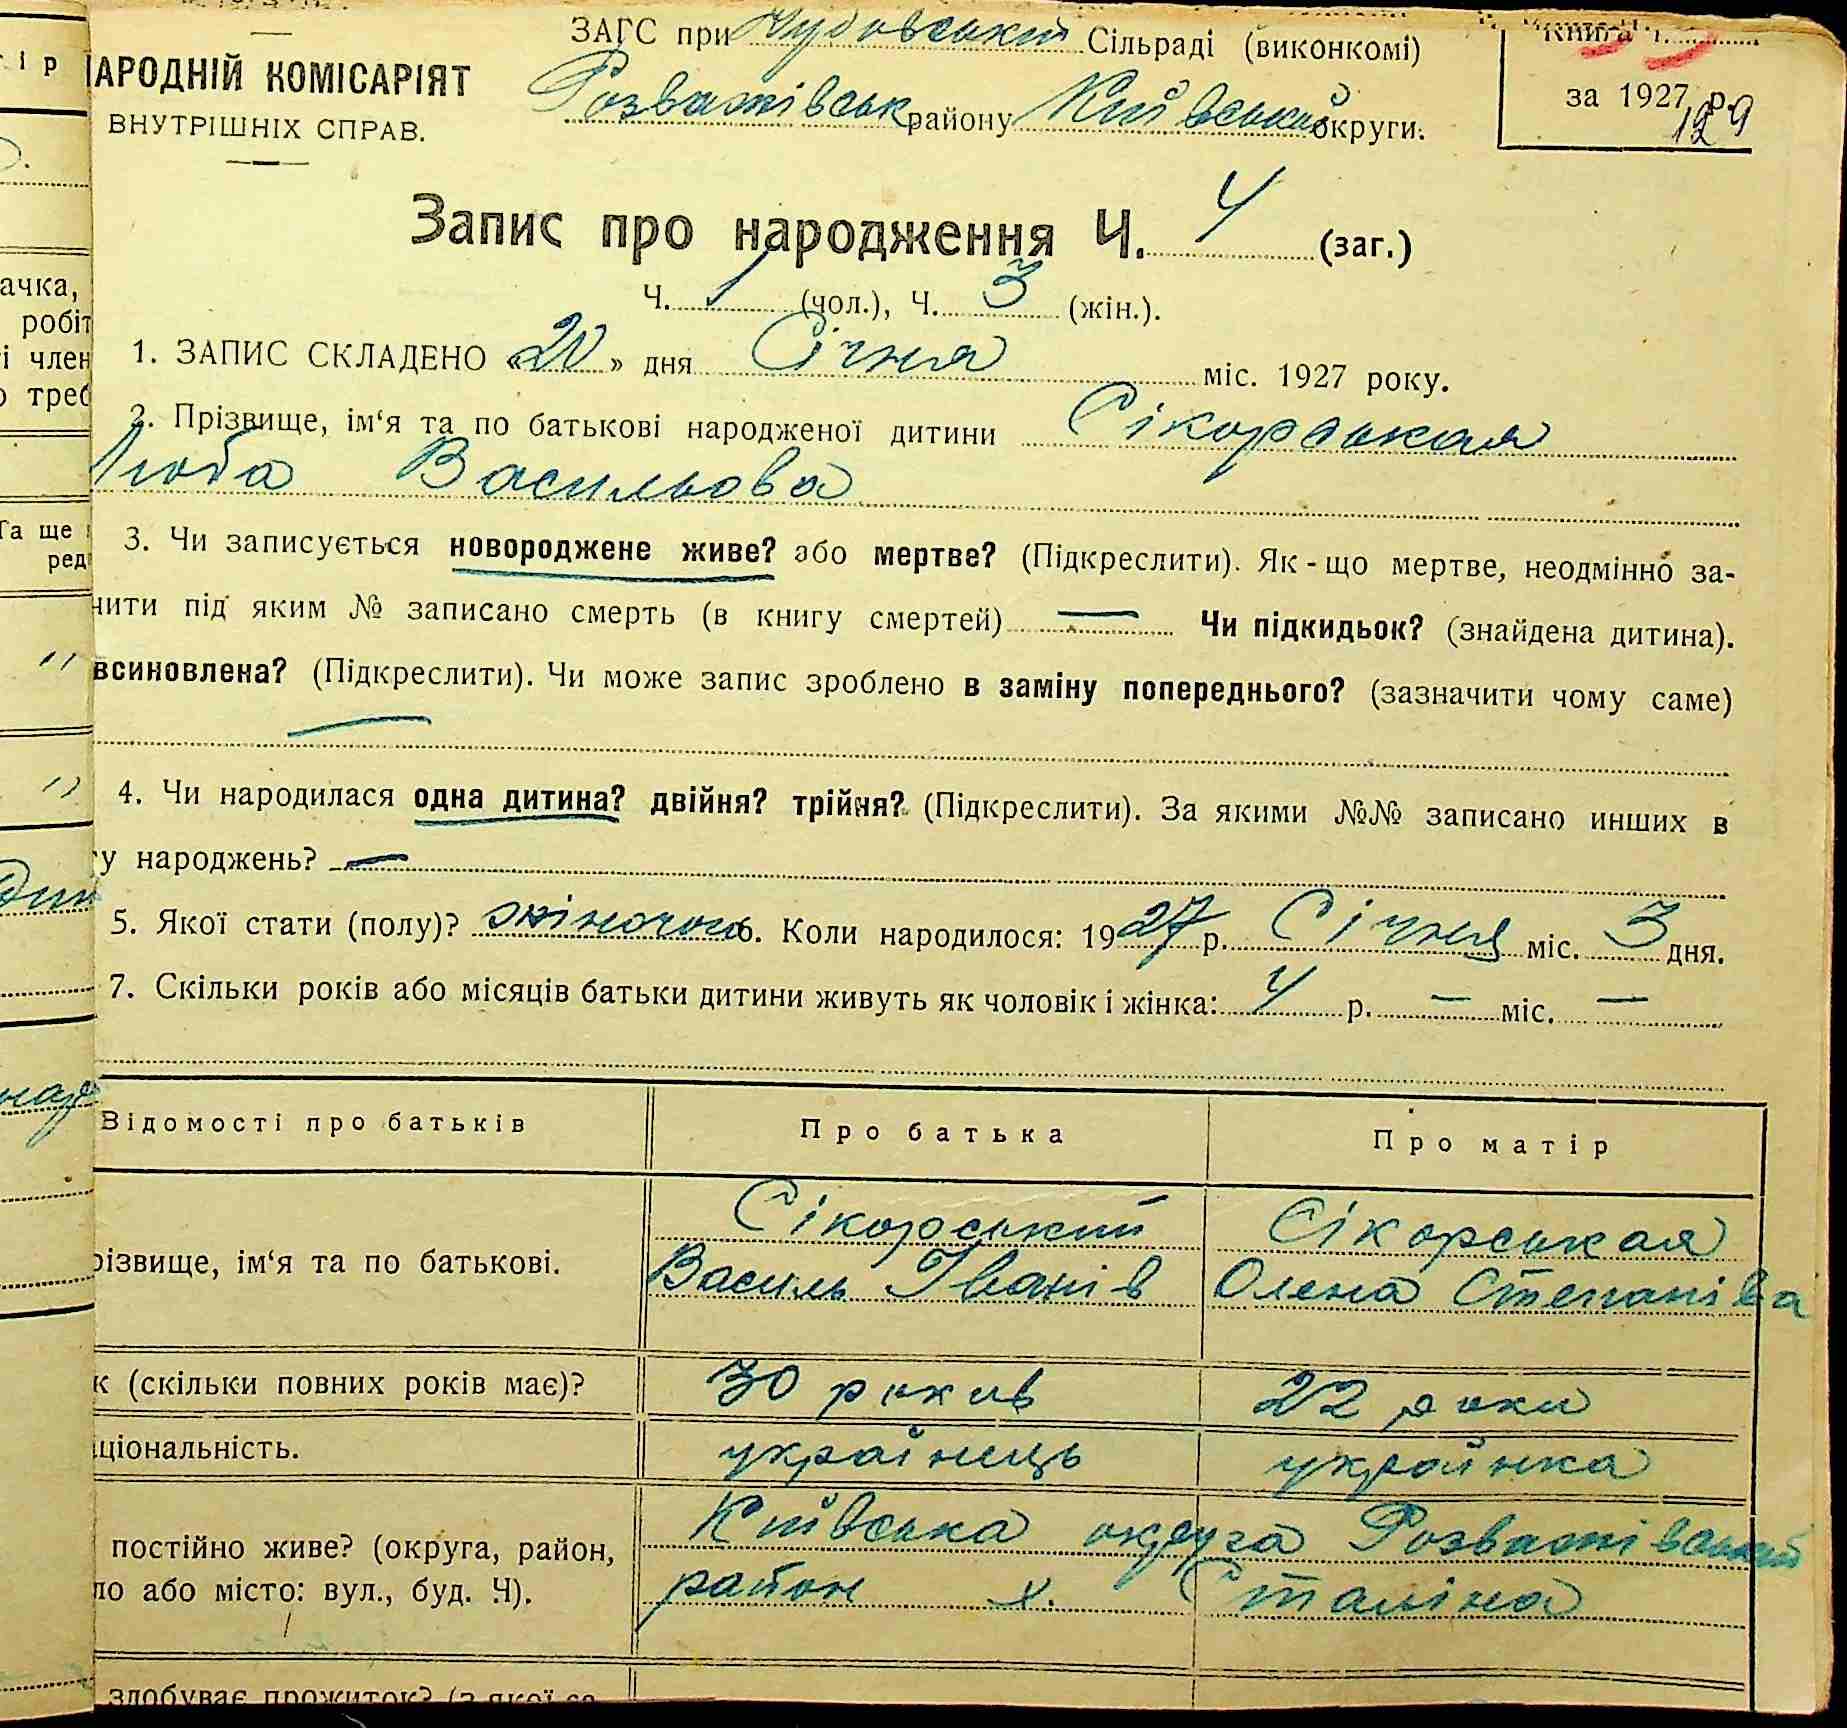 ЗАГС при Чудовський Сільраді (виконкомі)
НАРОДНІЙ КОМІСАРІЯТ
ВНУТРІШНІХ СПРАВ.
Розважівськ району Київської округи.
Книга Ч.
за 1927 р.
129
Запис про народження Ч. 4 (заг.)
Ч. 1 (чол.), Ч. 3 (жін.).
1. ЗАПИС СКЛАДЕНО «20» дня Січня міс. 1927 року.
2. Прізвище, ім‘я та по батькові народженої дитини Сікорськая
Люба Васильова
3. Чи записується новороджене живе? або мертве? (Підкреслити). Як-що мертве, неодмінно за-
чити під яким № записано смерть (в книгу смертей) — Чи підкидьок? (знайдена дитина).
всиновлена? (Підкреслити). Чи може запис зроблено в заміну попереднього? (зазначити чому саме)
—
4. Чи народилася одна дитина? двійня? трійня? (Підкреслити). За якими №№ записано инших в
у народжень? —
5. Якої стати (полу)? жіночого 6. Коли народилося: 1927 р. Січня міс. 3 дня.
7. Скільки років або місяців батьки дитини живуть як чоловік і жінка: 4 р. — міс. —
Відомості про батьків Про батька Про матір
різвище, ім‘я та по батькові.
Сікорський Сікорськая
Василь Іванів Олена Степаніва
к (скільки повних років має)? 30 роκив 22 роки
ціональність. українець українка
постійно живе? (округа, район,
ло або місто: вул., буд. Ч).
Київська округа Розважівський
район х. Сталіна
здобуває прожиток? (з якої са
тір
ачка,
робіт
і член
о треб
Та ще
ред